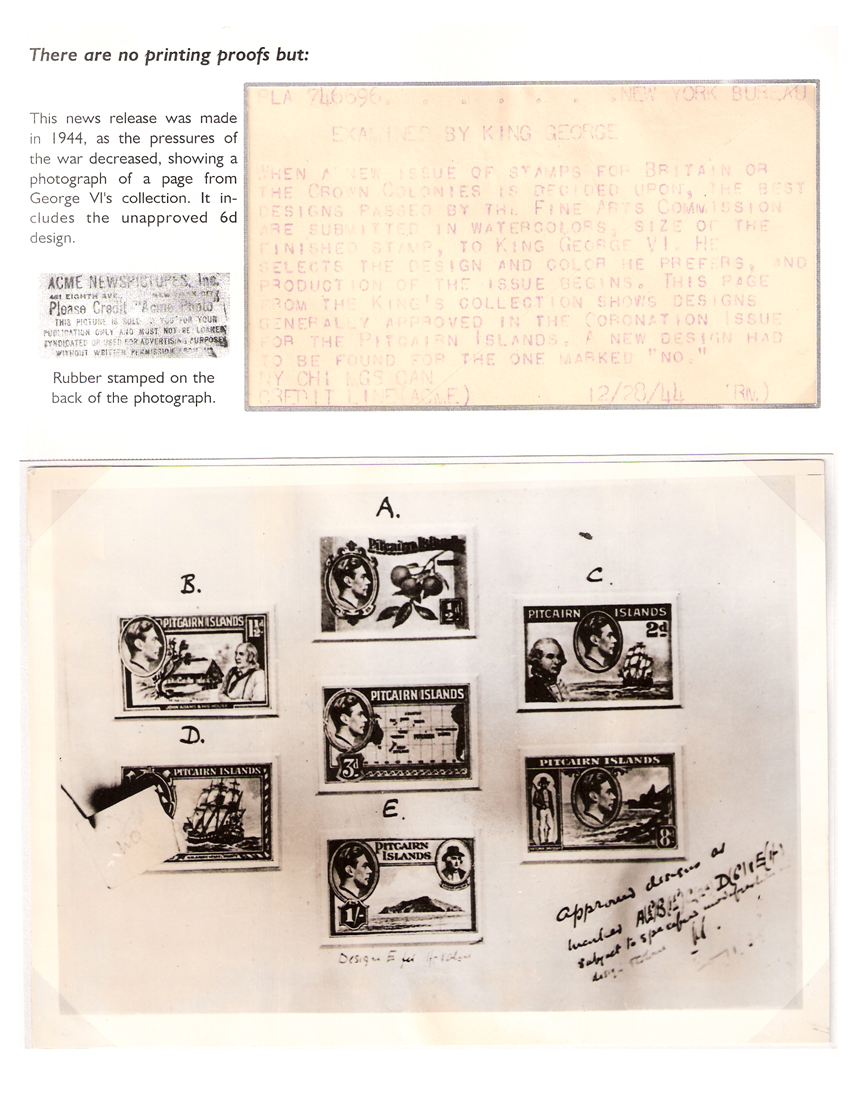 There are no printing proofs but:
This news release was made
in 1944, as the pressures of
the war decreased, showing a
photograph of a page from
George VI's collection. It in-
cludes the unapproved 6d
design.
ACME NEWSPICTURES, Inc.
461 EIGHTH AVE.,
Please Credit "Acme Photo"
THIS PICTURE IS SOLD YOU FOR YOUR
PUBLICATION ONLY AND MUST NOT BE LOANED
SYNDICATED OR USED FOR ADVERTISING PURPOSES
WITHOUT WRITTEN PERMISSION
Rubber stamped on the
back of the photograph.
PLA 746696. . . . . . .NEW YORK BUREAU
EXAMINED BY KING GEORGE
WHEN A NEW ISSUE OF STAMPS FOR BRITAIN OR
THE CROWN COLONIES IS DECIDED UPON, THE BEST
DESIGNS PASSED BY THE FINE ARTS COMMISSION
ARE SUBMITTED IN WATERCOLORS, SIZE OF THE
FINISHED STAMP, TO KING GEORGE VI. HE
SELECTS THE DESIGN AND COLOR HE PREFERS, AND
PRODUCTION OF THE ISSUE BEGINS. THIS PAGE
FROM THE KING'S COLLECTION SHOWS DESIGNS
GENERALLY APPROVED IN THE CORONATION ISSUE
FOR THE PITCAIRN ISLANDS. A NEW DESIGN HAD
TO BE FOUND FOR THE ONE MARKED "NO."
NY CHI LGS CAN
CREDIT LINE(ACME) 12/28/44 RM)
A.
PITCAIRN ISLANDS
½d
B.
PITCAIRN ISLANDS 1½d
JOHN ADAMS & HIS HOUSE
C.
PITCAIRN ISLANDS
2d
PITCAIRN ISLANDS
3d
D.
PITCAIRN ISLANDS
NO
PITCAIRN ISLANDS
8d
E.
PITCAIRN
ISLANDS
1/-
Design E for
Approved designs as
marked
subject to specified
design